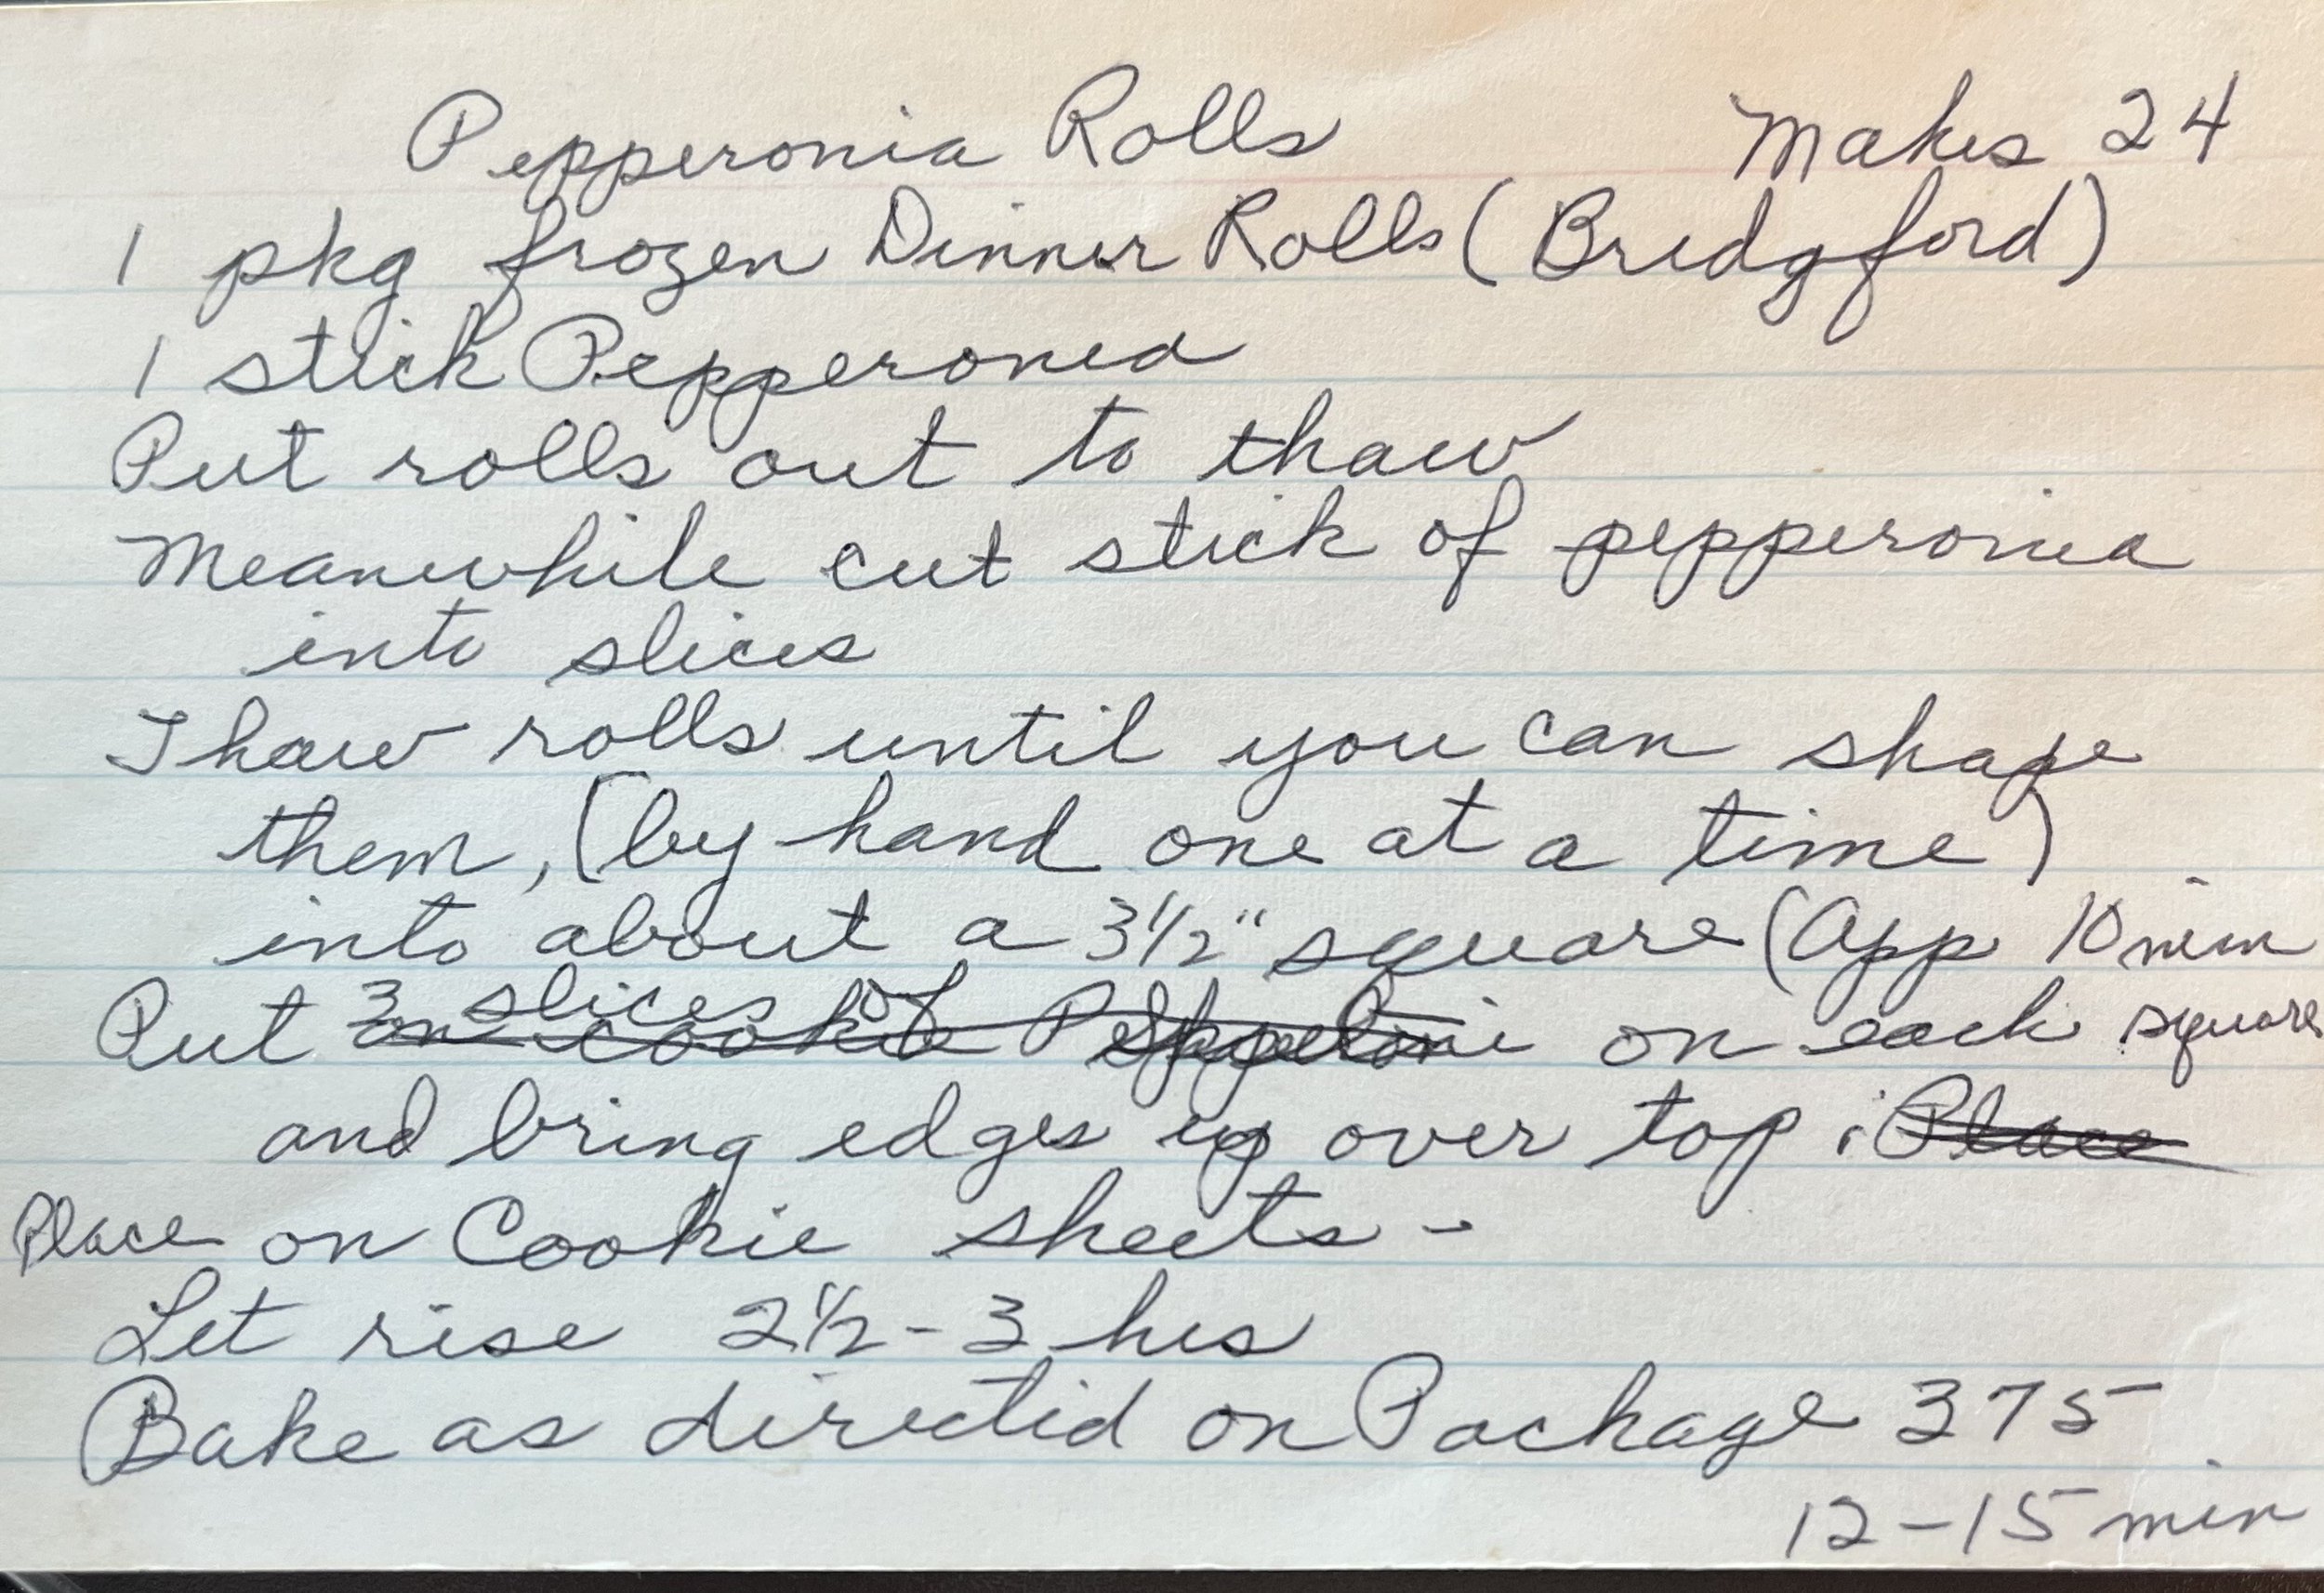 Pepperonia Rolls Makes 24
1 pkg frozen Dinner Rolls (Bridgford)
1 stick Pepperonia
Put rolls out to thaw
Meanwhile cut stick of pepperonia
into slices
Thaw rolls until you can shape
them, (by hand one at a time)
into about a 3½" square (App 10 min
Put 3 slices of Pepperoni on each square
and bring edges up over top. Place
Place on Cookie sheets -
Let rise 2½ - 3 hrs
Bake as directed on Package 375
12-15 min